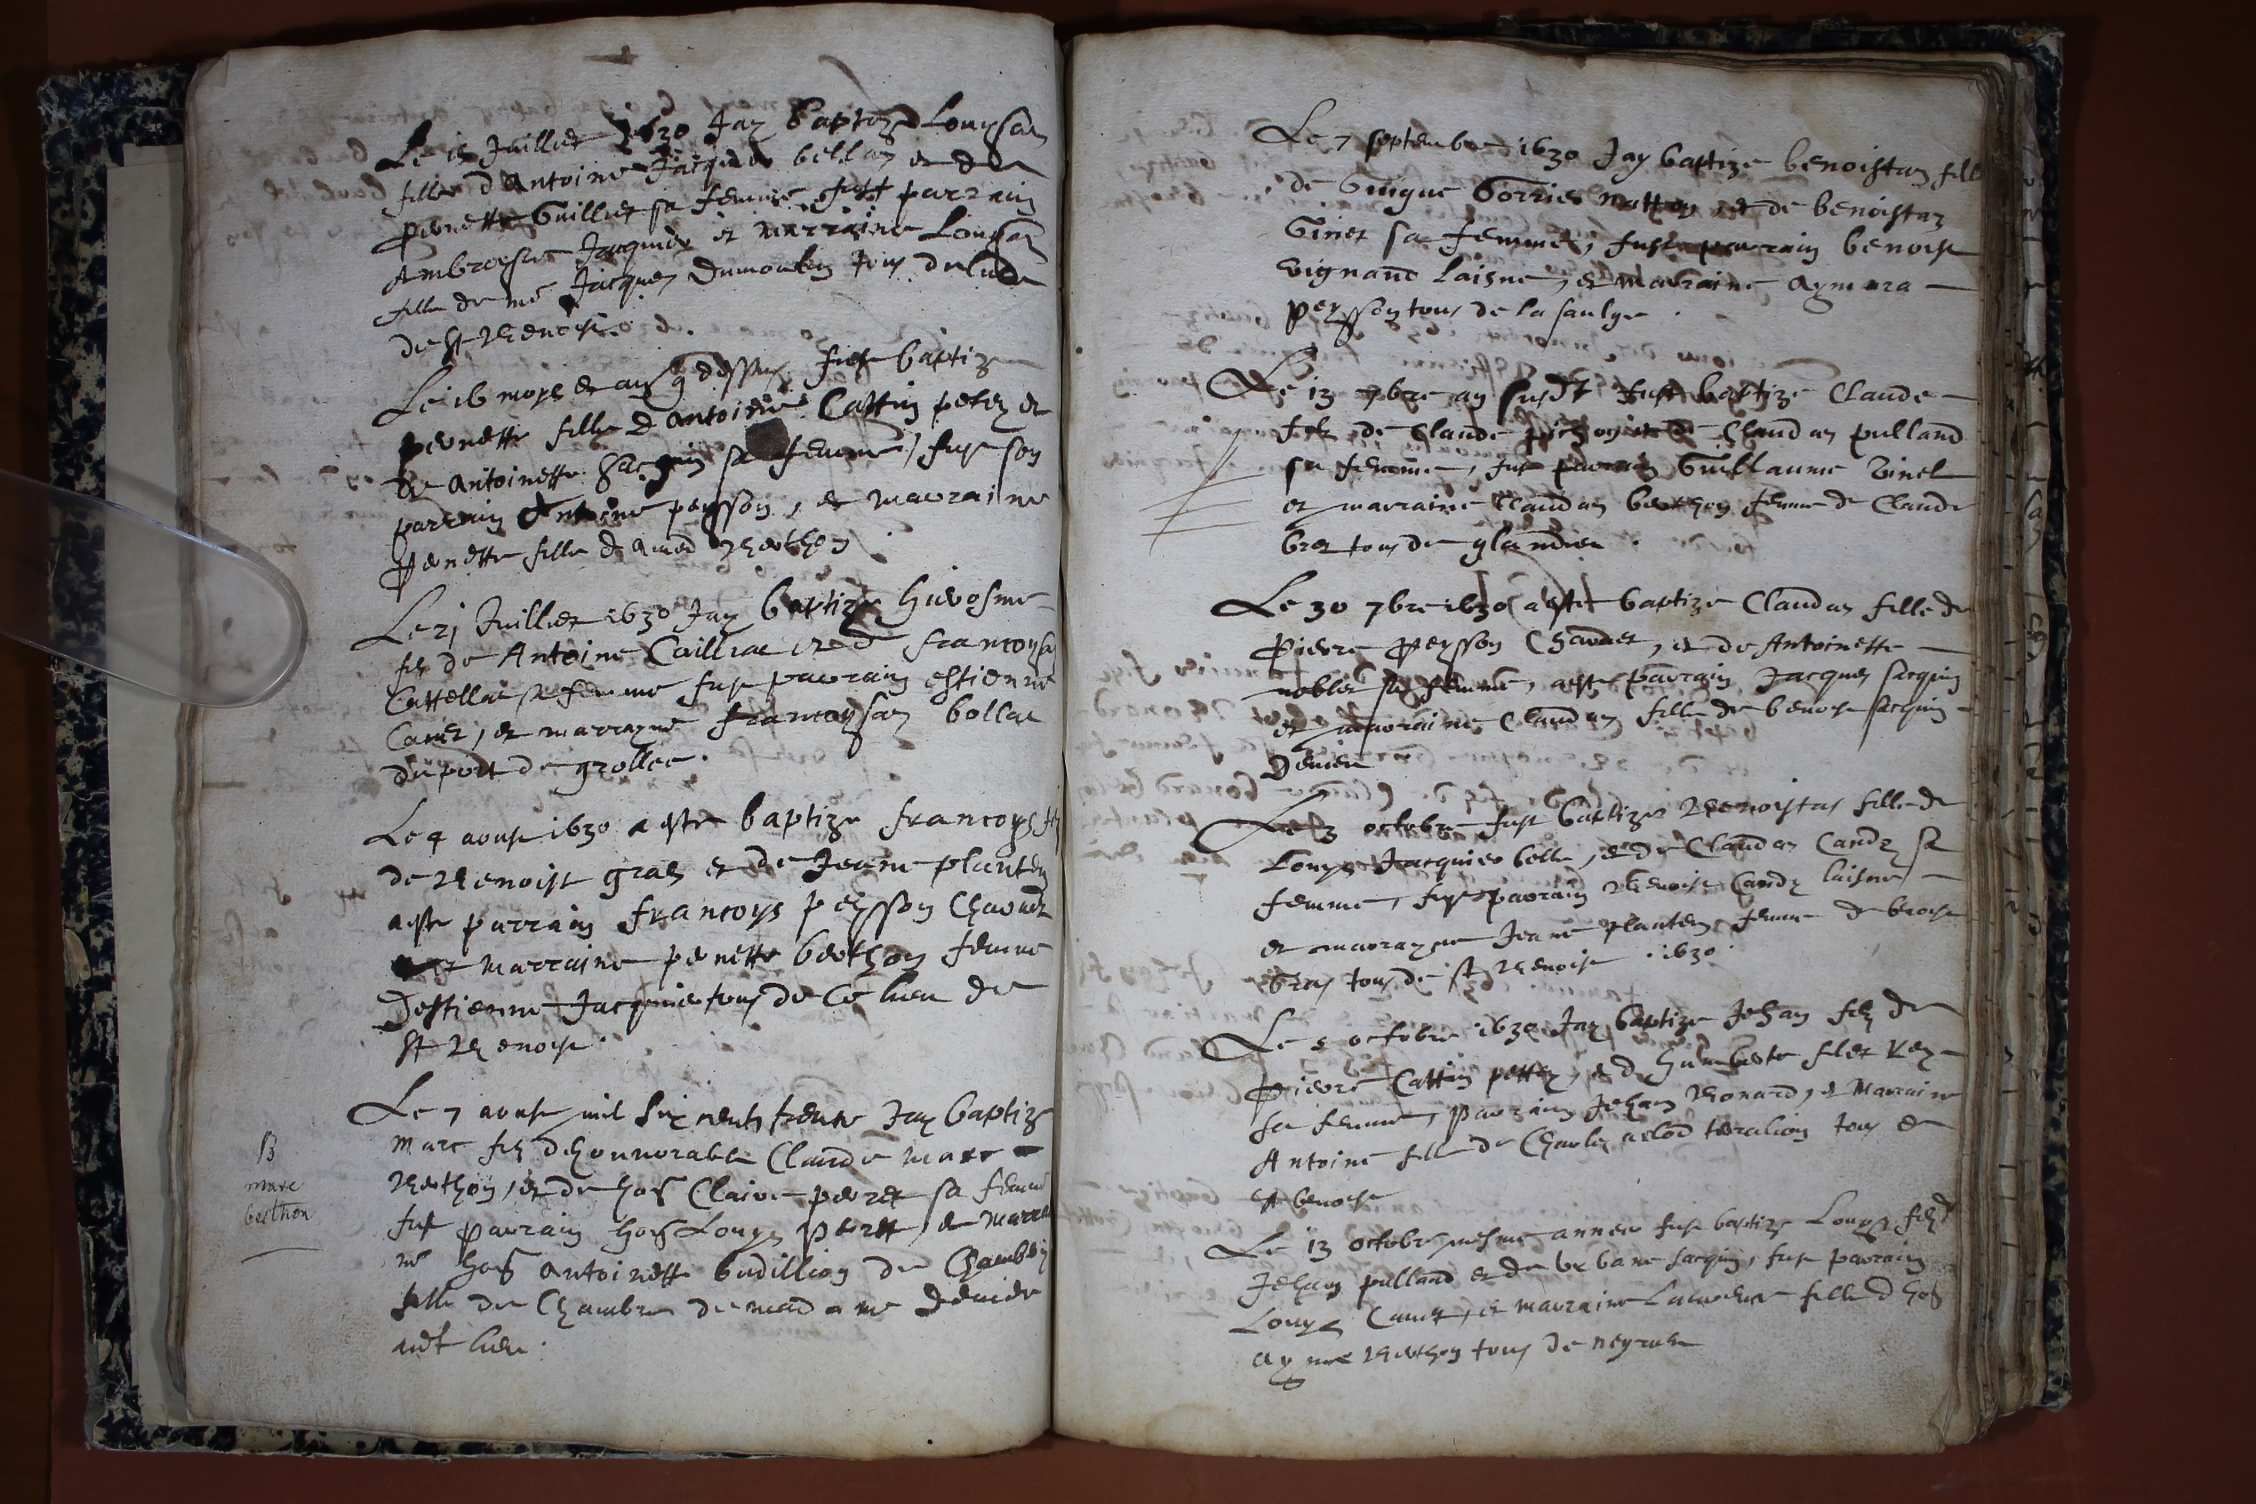 Le 15 Juillet 1630 Jay baptizé Louysaz
fille d Antoine Jacquier bellaz et de
pernette Guillet sa femme fust parrain
Ambroise Jacquier et marraine Louysaz
fille de me Jacques Dumoulin tous dudit
de St Benoist.
Le 16 moys et an q dessus fust baptizé
pernette fille d Antoine Cattin petez et
de Antoinette Sacquin sa femme, fust son
parrain Antoine peysson, et marraine
pernette fille d Amed Berthon
Le 21 Juillet 1630 Jay baptizé hierosme
filz de Antoine Caillat et d francoysaz
Cattellat sa femme fust parrain estienne
Canet, et marrayne francoysaz bollat
du port de grollee.
Le 4 aoust 1630 a esté baptizé francoys filz
de Benoist gras et de Jeanne plantez
a esté parrain francoys peysson Chavant
et marraine pernette berthon femme
Destienne Jacquier tous de Ce lieu de
St Benoist.
Le 7 aoust mil six cents trente Jay baptizé
Marc filz dhonnorable Claude Marc
Berthon, et de hon Claire perret sa femme
fust parrain hon Louys Perret, et marrai
ne hon Antoinette budillion de Chambery
fille de Chambre de madame
audt lieu.
B
marc
berthon
Le 7 septembre 1630 Jay baptizé benoistaz fille
de Guigue Gorrier Natton et de benoistaz
Ginet sa femme, fust parrain benoist
vignand laisne, et marraine Aymara
peysson tous de la saulge.
Le 13 7bre an susdt fust baptizé Claude
filz de Claude pichon et de Claudaz pulland
sa femme, fust parrain Guillaume Vinel
et marraine Claudaz berthon femme de Claude
bret tous de glandieu.
Le 30 7bre 1630 a esté baptizé Claudaz fille de
Pierre Peysson Chavant, et de Antoinette
noblet sa femme, a esté parrain Jacques sacquin
et marraine Claudaz fille de benoist sacquin
Le 3 octobre fust baptizé Benoistaz fille de
Louys Jacquier bella, et de Claudaz Candy sa
femme, fust parrain Benoist Candy laisne
et marrayne Jeane plantez femme de benoist
Gras tous de St Benoist. 1630.
Le 5 octobre 1630 Jay baptizé Jehan filz de
pierre Cattin pettez, et d humberte filet Rey
sa femme, parrain Jehan Bonard, et Marraine
Antoine fille de Charles tous de
St benoist
Le 13 octobre mesme annee fust baptizé Louys filz d
Jehan pulland et de Urbane sacquin, fust parrain
Louys Canet, et marraine Laurence fille d hon
Ayme Berthon tous de neyrieu